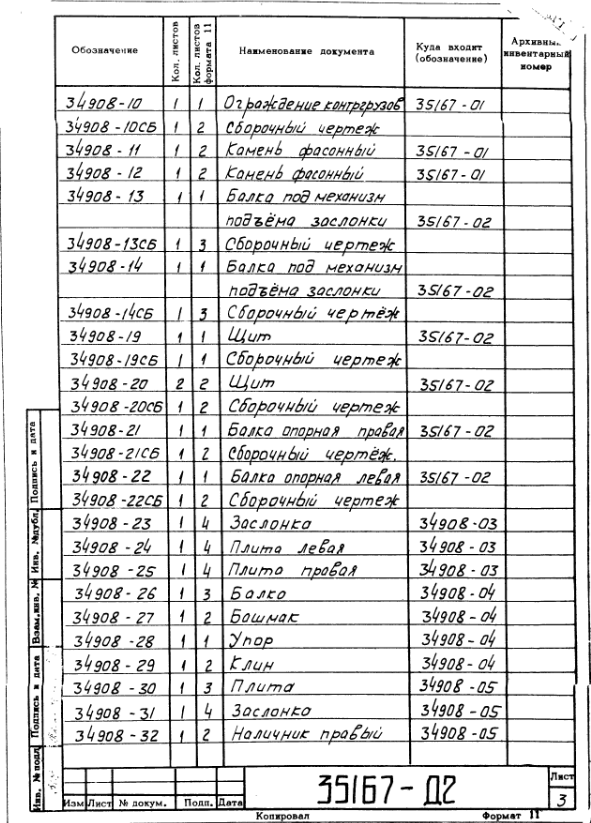 Обозначение Кол. листов Кол. листов формата 11 Наименование документа Куда входит (обозначение) Архивный инвентарный номер
34908-10 1 1 Ограждение контргрузов 35167-01
34908-10СБ 1 2 Сборочный чертеж
34908-11 1 2 Камень фасонный 35167-01
34908-12 1 2 Камень фасонный 35167-01
34908-13 1 1 Балка под механизм
подъёма заслонки 35167-02
34908-13СБ 1 3 Сборочный чертеж
34908-14 1 1 Балка под механизм
подъёма заслонки 35167-02
34908-14СБ 1 3 Сборочный чертёж
34908-19 1 1 Щит 35167-02
34908-19СБ 1 1 Сборочный чертеж
34908-20 2 2 Щит 35167-02
34908-20СБ 1 2 Сборочный чертеж
34908-21 1 1 Балка опорная правая 35167-02
34908-21СБ 1 2 Сборочный чертёж.
34908-22 1 1 Балка опорная левая 35167-02
34908-22СБ 1 2 Сборочный чертеж
34908-23 1 4 Заслонка 34908-03
34908-24 1 4 Плита левая 34908-03
34908-25 1 4 Плита правая 34908-03
34908-26 1 3 Балка 34908-04
34908-27 1 2 Башмак 34908-04
34908-28 1 1 Упор 34908-04
34908-29 1 2 Клин 34908-04
34908-30 1 3 Плита 34908-05
34908-31 1 4 Заслонка 34908-05
34908-32 1 2 Наличник правый 34908-05
Инв. № подл Подпись и дата Взам.инв. № Инв. №дубл. Подпись и дата
Изм Лист № докум. Подп. Дата
35167-Д2
Лист
3
Копировал Формат 11